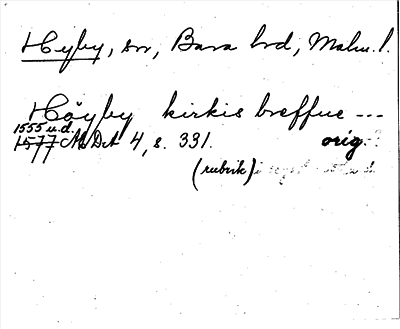 Hyby, sn, Bara hd, Malm. l.
Höyby kirkis breffue ---
1555 u.d.
1577 AtDA 4, s. 331. orig.?
(rubrik)